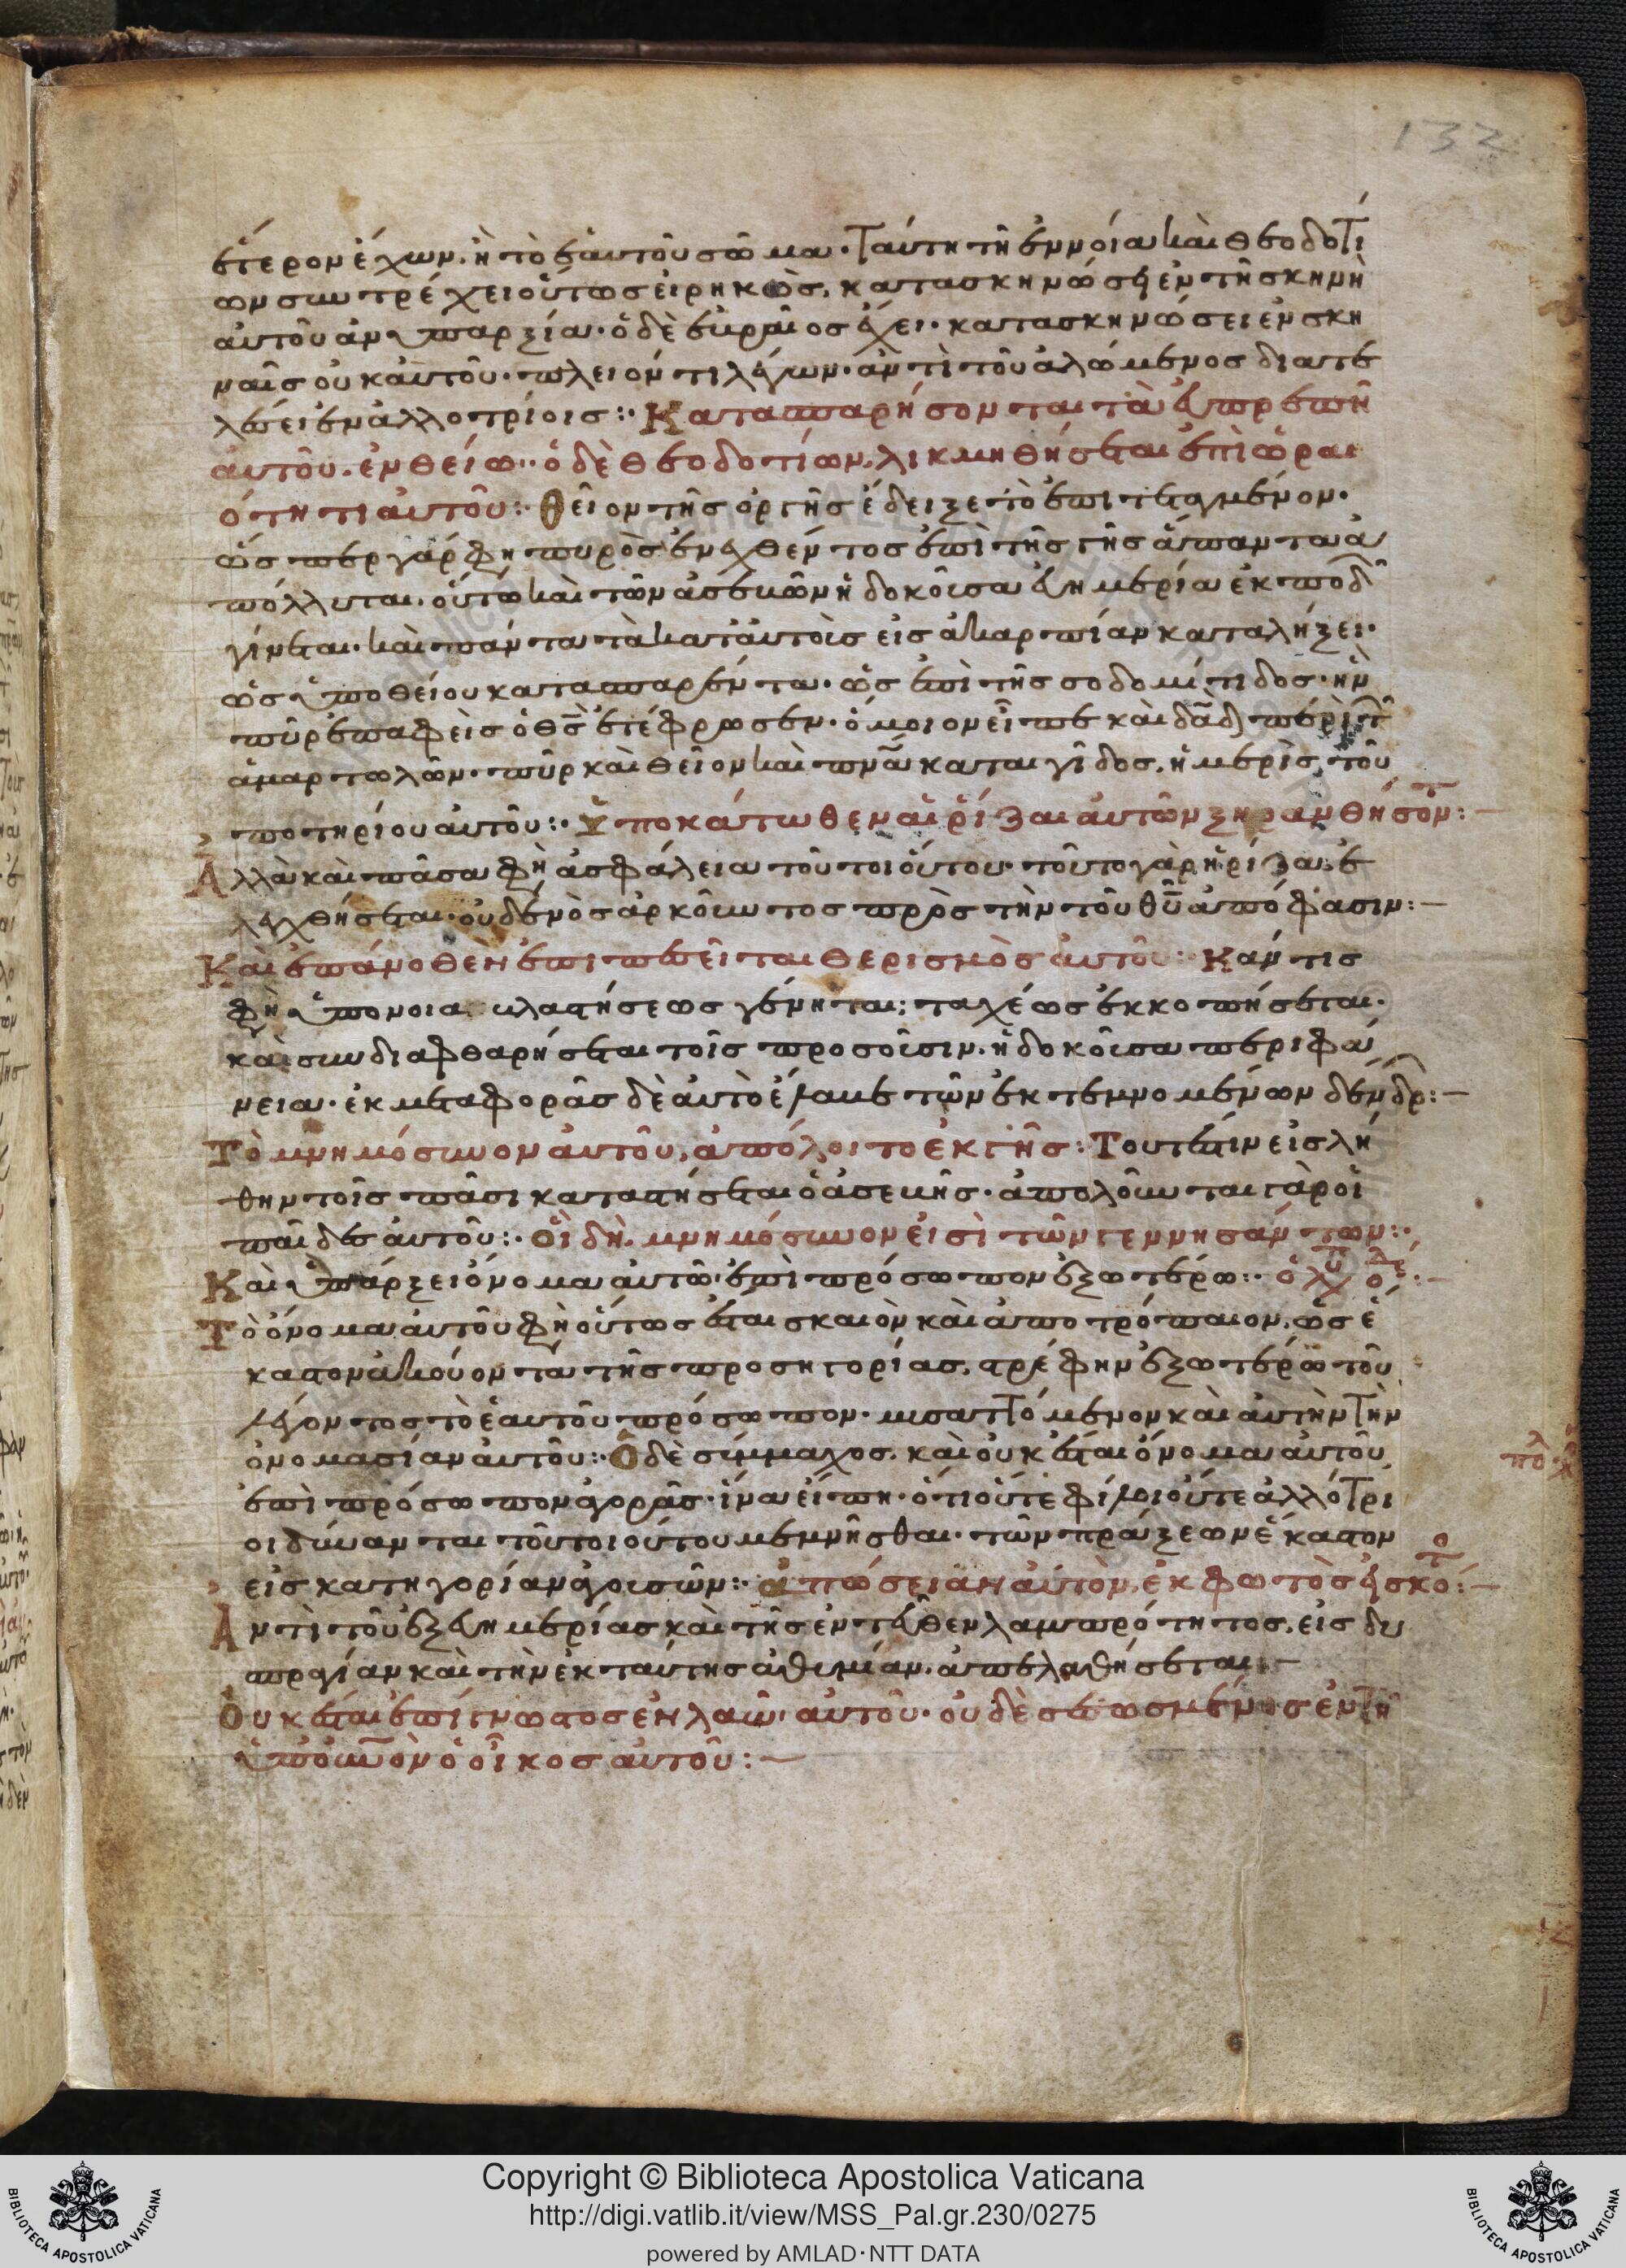 132
ἕτερον ἔχων, ἢ τὸ ἑαυτοῦ σῶμα. Ταύτη τῆ ἐννοία καὶ Θεοδοτί
ων συντρέχει οὕτως εἰρηκὼς, κατασκηνώσει ἐν τῆ σκηνῆ
αὐτοῦ ἀνυπαρξία. ὁ δὲ ἑβραῖος ἔχει. κατασκηνώσει ἐν σκη
ναῖς οὐκ αὐτοῦ. πλεῖόν τι λέγων. ἀντὶ τοῦ ἀλώμενος διατε
λέσει ἐν ἀλλοτρίοις:. Κατασπαρήσονται τὰ εὐπρεπῆ
αὐτοῦ. ἐν θείω.. ὁ δὲ Θεοδοτίων. λικμηθήσεται ἐπὶ ὡραι
ότητι αὐτοῦ:. Θεῖον τῆς ὀργῆς ἔδειξε τὸ ἐπιτεταγμένον.
ὥσπερ γάρ φη πυρὸς ἐνεχθέντος ἐπὶ τῆς γῆς ἅπαντα ἀ
πόλλυται. οὕτω καὶ τῶν ἀσεβῶν ἡ δοκοῦσα εὐημερία ἐκποδ
γίνεται. καὶ πάντα τὰ κατ' αὐτοὺς εἰς ἀκαρπίαν καταλήξει.
ὡς ὑπὸ θείου κατασπαρέντα. ὡς ἐπὶ τῆς σοδομίτιδος. ἣν
πῦρ ἐπαφεὶς ὁ θς ἐτέφρωσεν. ὅμοιον εἶπε καὶ δαδ περὶ τ
ἁμαρτωλῶν. πῦρ καὶ θεῖον καὶ πνα καταιγίδος, ἡ μερὶς τοῦ
ποτηρίου αὐτοῦ:. Ὑποκάτωθεν αἱ ῥίζαι αὐτῶν ξηρανθήσοντ:—
Ἀλλὰ καὶ πᾶσα φὴ ἀσφάλεια τοῦ τοιούτου. τοῦτο γὰρ ἡ ῥίζα. ἐ
λεγχθήσεται. οὐδενὸς ἀρκοῦντος πρὸς τὴν τοῦ θυ ἀπόφασιν:—
Καὶ ἐπάνοθεν ἐπιπεσεῖται θερισμὸς αὐτοῦ:. Κἄν τις
φὴ ὑπόνοια βλαστήσεως γένηται; ταχέως ἐκκοπήσεται.
καὶ συνδιαφθαρήσεται τοῖς προσοῦσιν. ἡ δοκοῦσα περιφά
νεια. ἐκ μεταφορᾶς δὲ αὐτὸ ἔλαβε τῶν ἐκτεμνομένων δένδρ:—
Τὸ μνημόσυνον αὐτοῦ, ἀπόλοιτο ἐκ γῆς: Τουτέστιν εἰς λή
θην τοῖς πᾶσι καταστήσεται ὁ ἀσεβής. ἀπολοῦνται γὰρ οἱ
παῖδες αὐτοῦ:. οἳ δὴ. μνημόσυνον εἰσὶ τῶν γεννησάντων:.
Καὶ ὑπάρξει ὄνομα αὐτῶ. ἐπὶ πρόσωπον ἐξωτέρω:.
Τὸ ὄνομα αὐτοῦ φὴ οὕτως ἔσται σκαιὸν καὶ ἀποτρόπαιον, ὡς ἕ
καστον ἀκούοντα τῆς προσηγορίας, στρέφειν ἐξωτέρω τοῦ
λέγοντος τὸ ἑαυτοῦ πρόσωπον. μυσαττόμενον καὶ αὐτὴν τὴν
ὀνομασίαν αὐτοῦ:. Ὁ δὲ σύμμαχος. καὶ οὐκ ἔσται ὄνομα αὐτοῦ
ἐπὶ πρόσωπον ἀγορᾶς. ἵνα εἴπη. ὅτι οὔτε φίλοι οὔτε ἀλλότρι
οι δύνανται τοῦ τοιούτου μεμνῆσθαι. τῶν πράξεων ἕκαστον
εἰς κατηγορίαν ἀγουσῶν:. ἀπώσειαν αὐτὸν, ἐκ φωτὸς εἰς σκότο:—
Ἀντὶ τοῦ ἐξ εὐημερίας καὶ τῆς ἐντεῦθεν λαμπρότητος, εἰς δυ
πραγίαν καὶ τὴν ἐκ ταύτης ἀθυμίαν. ἀπελαθήσεται:—
Οὐκ ἔσται ἐπίγνωστος ἐν λαῶ αὐτοῦ. οὐδὲ σεσωσμένος ἐν τῆ
ὑπ' οὐνον ὁ οἶκος αὐτοῦ:—
Copyright © Biblioteca Apostolica Vaticana
http://digi.vatlib.it/view/MSS_Pal.gr.230/0275
powered by AMLAD·NTT DATA
BIBLIOTECA APOSTOLICA VATICANA
BIBLIOTECA APOSTOLICA VATICANA